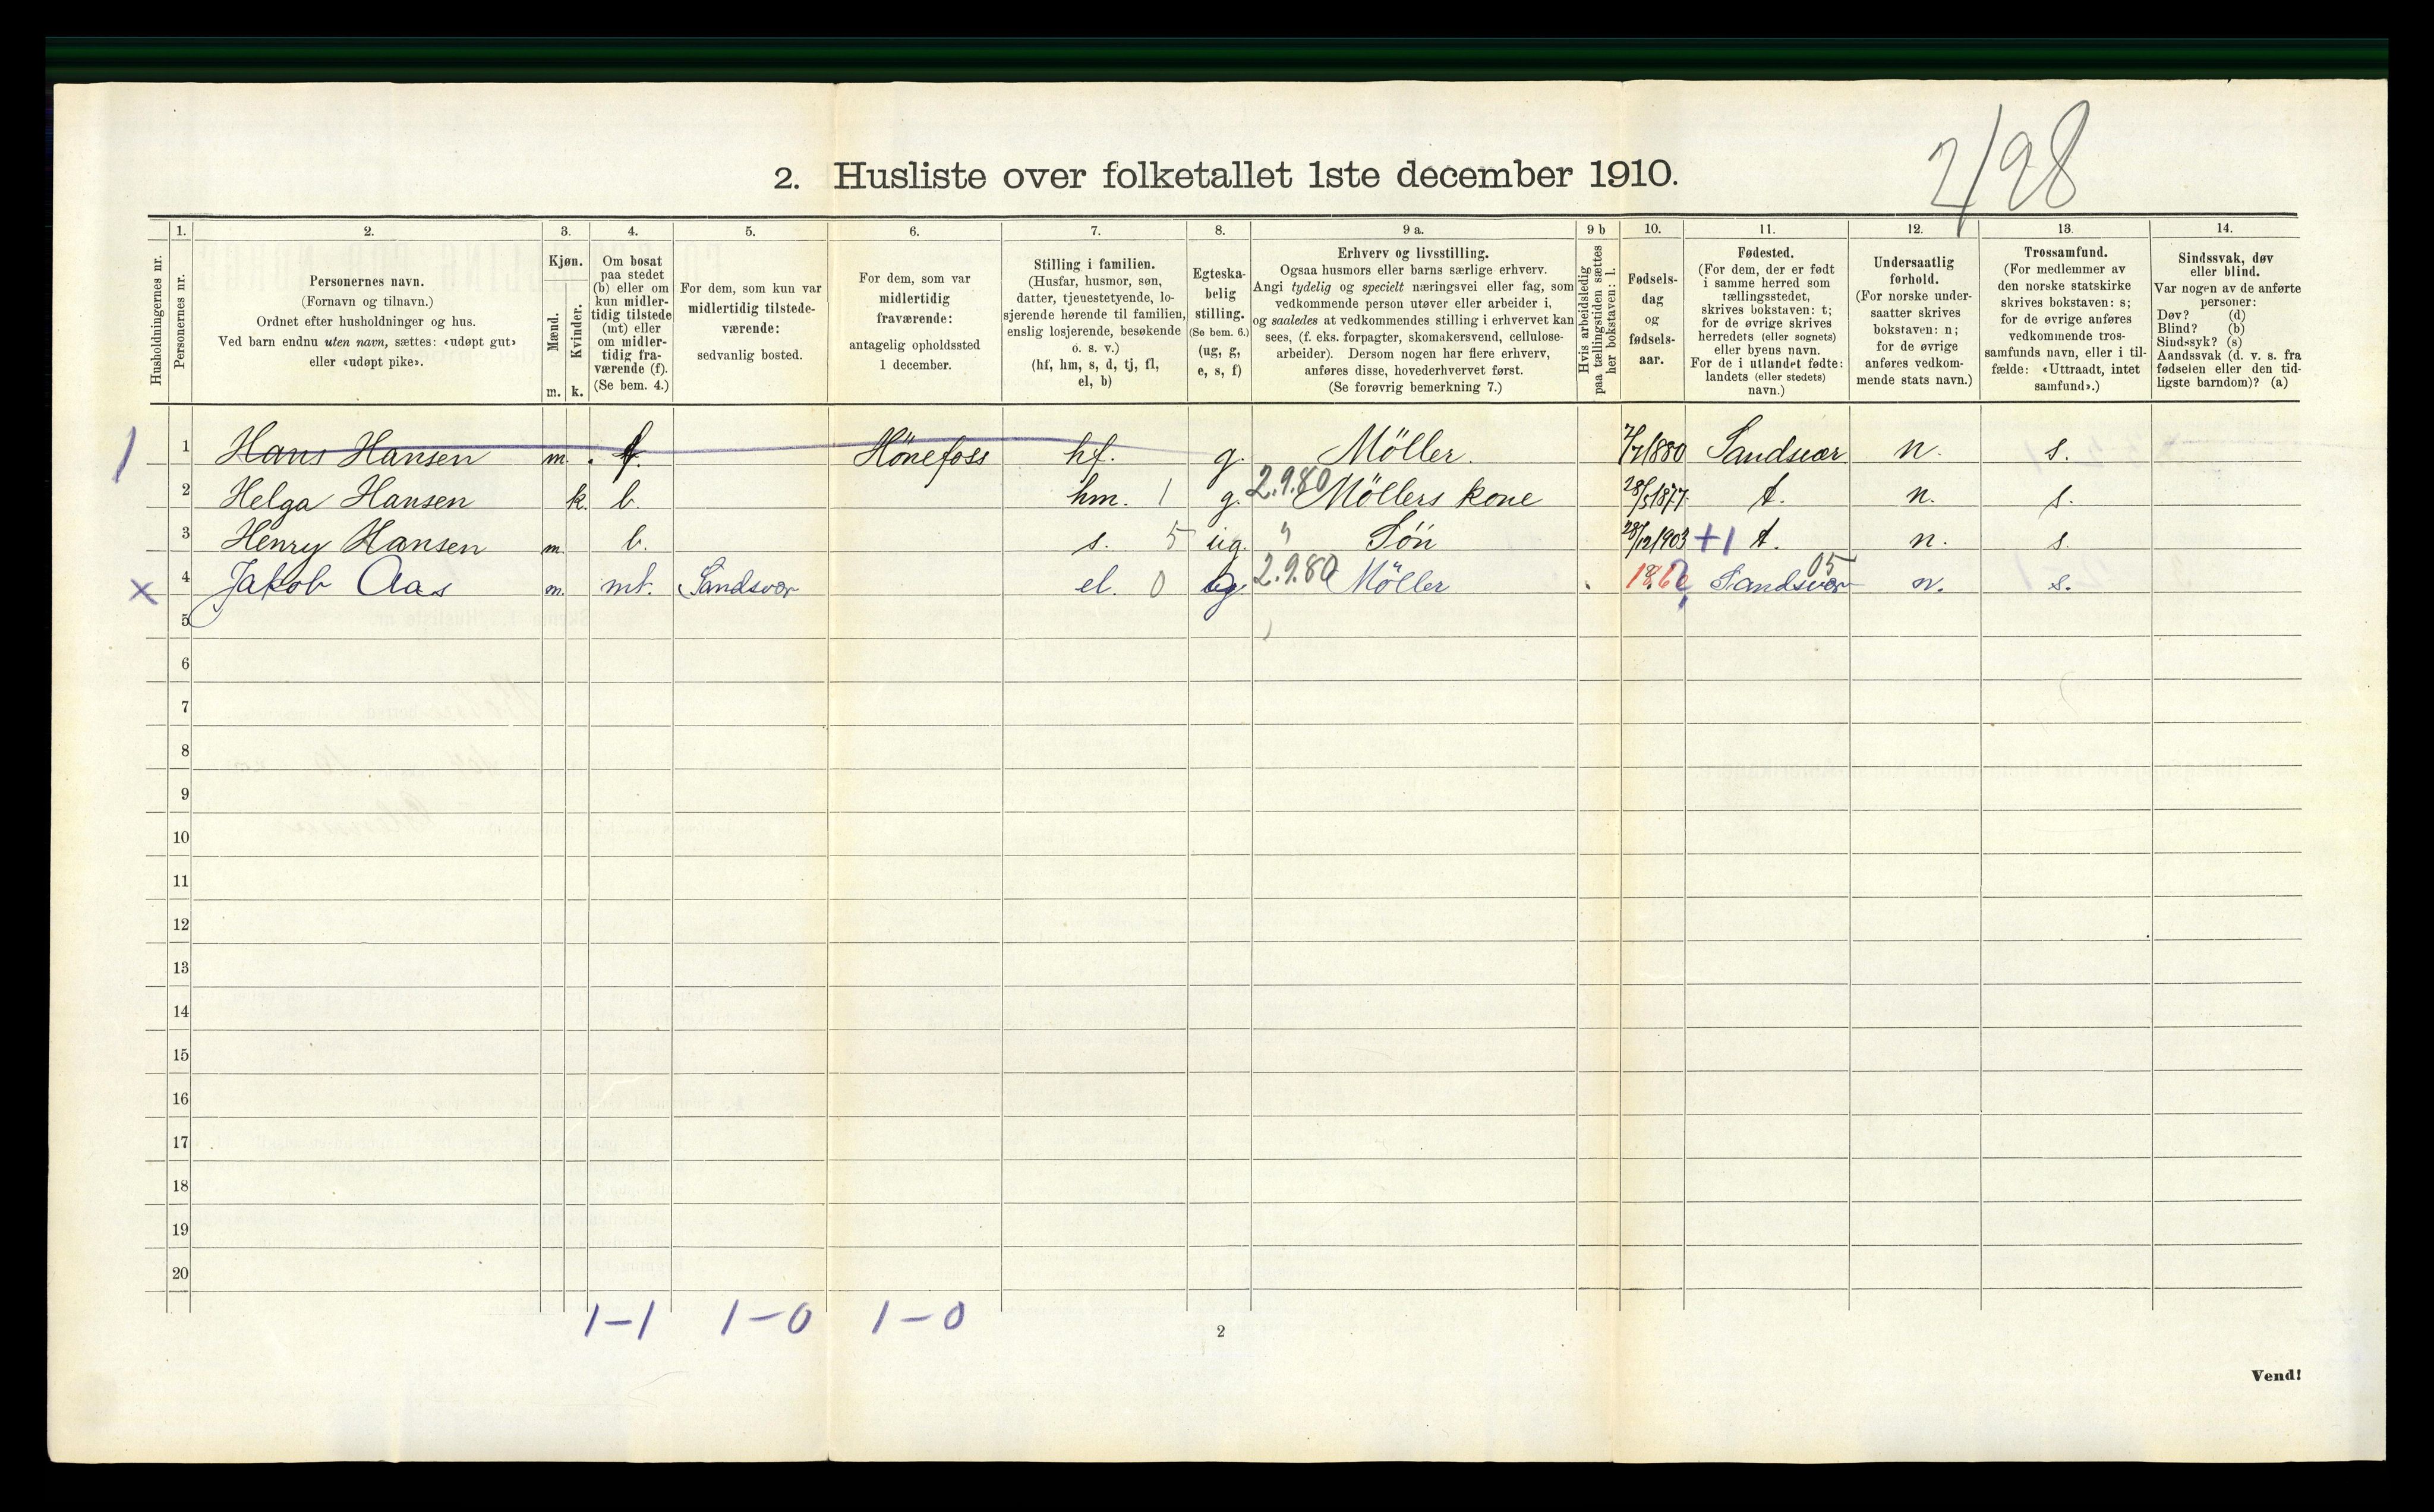 2/98
2. Husliste over folketallet 1ste december 1910.
Husholdningernes nr.
1. Personernes nr.
2. Personernes navn.
(Fornavn og tilnavn.)
Ordnet efter husholdninger og hus.
Ved barn endnu uten navn, sættes: «udøpt gut»
eller «udøpt pike».
3. Kjøn.
Mænd. Kvinder.
m. k.
4. Om bosat
paa stedet
(b) eller om
kun midler-
tidig tilstede
(mt) eller
om midler-
tidig fra-
værende (f).
(Se bem. 4.)
5. For dem, som kun var
midlertidig tilstede-
værende:
sedvanlig bosted.
6. For dem, som var
midlertidig
fraværende:
antagelig opholdssted
1 december.
7. Stilling i familien.
(Husfar, husmor, søn,
datter, tjenestetyende, lo-
sjerende hørende til familien,
enslig losjerende, besøkende
o. s. v.)
(hf, hm, s, d, tj, fl,
el, b)
8. Egteska-
belig
stilling.
(Se bem. 6.)
(ug, g,
e, s, f)
9 a. Erhverv og livsstilling.
Ogsaa husmors eller barns særlige erhverv.
Angi tydelig og specielt næringsvei eller fag, som
vedkommende person utøver eller arbeider i,
og saaledes at vedkommendes stilling i erhvervet kan
sees, (f. eks. forpagter, skomakersvend, cellulose-
arbeider). Dersom nogen har flere erhverv,
anføres disse, hovederhvervet først.
(Se forøvrig bemerkning 7.)
9 b Hvis arbeidsledig
paa tællingstiden sættes
her bokstaven: l.
10. Fødsels-
dag
og
fødsels-
aar.
11. Fødested.
(For dem, der er født
i samme herred som
tællingsstedet,
skrives bokstaven: t;
for de øvrige skrives
herredets (eller sognets)
eller byens navn.
For de i utlandet fødte:
landets (eller stedets)
navn.)
12. Undersaatlig
forhold.
(For norske under-
saatter skrives
bokstaven: n;
for de øvrige
anføres vedkom-
mende stats navn.)
13. Trossamfund.
(For medlemmer av
den norske statskirke
skrives bokstaven: s;
for de øvrige anføres
vedkommende tros-
samfunds navn, eller i til-
fælde: «Uttraadt, intet
samfund».)
14. Sindssvak, døv
eller blind.
Var nogen av de anførte
personer:
Døv? (d)
Blind? (b)
Sindssyk? (s)
Aandssvak (d. v. s. fra
fødselen eller den tid-
ligste barndom)? (a)
1 1 Hans Hansen m. f. Hönefoss hf. g. Möller. Sandsvær n. s.
2 Helga Hansen k. b. hm. 1 g. 2.9.80 Möllers kone 28/5 1877 t. n. s.
3 Henry Hansen m. b. s. 5 ug. " Sön 28/12 1903 +1 t. n. s.
x 4 Jakob Aas m. mt. Sandsvær el. 0 2.9.80 Möller Sandsvær 05 n. s.
5
6
7
8
9
10
11
12
13
14
15
16
17
18
19
20
1-1 1-0 1-0
2
Vend!